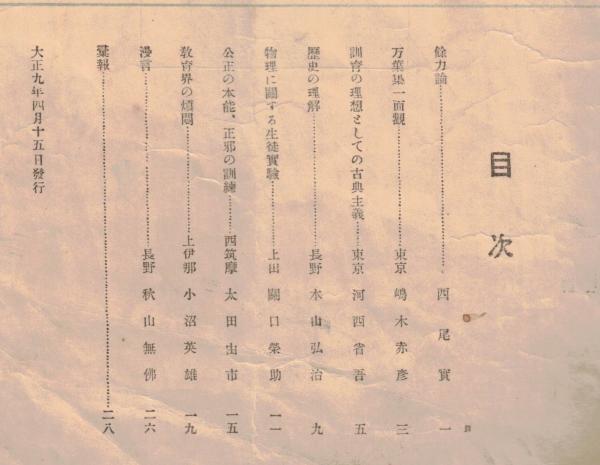 目次
餘力論……………西尾實 一
万葉集一面觀……………東京 嶋木赤彦 三
訓育の理想としての古典主義……東京 河西省吾 五
歷史の理解……………長野 木山弘治 九
物理に關する生徒實驗……………上田 關口榮助 一一
公正の本能、正邪の訓練………西筑摩 太田宙市 一五
教育界の煩悶……………上伊那 小沼英雄 一九
漫言……………長野 秋山無佛 二六
彙報……………二八
大正九年四月十五日發行